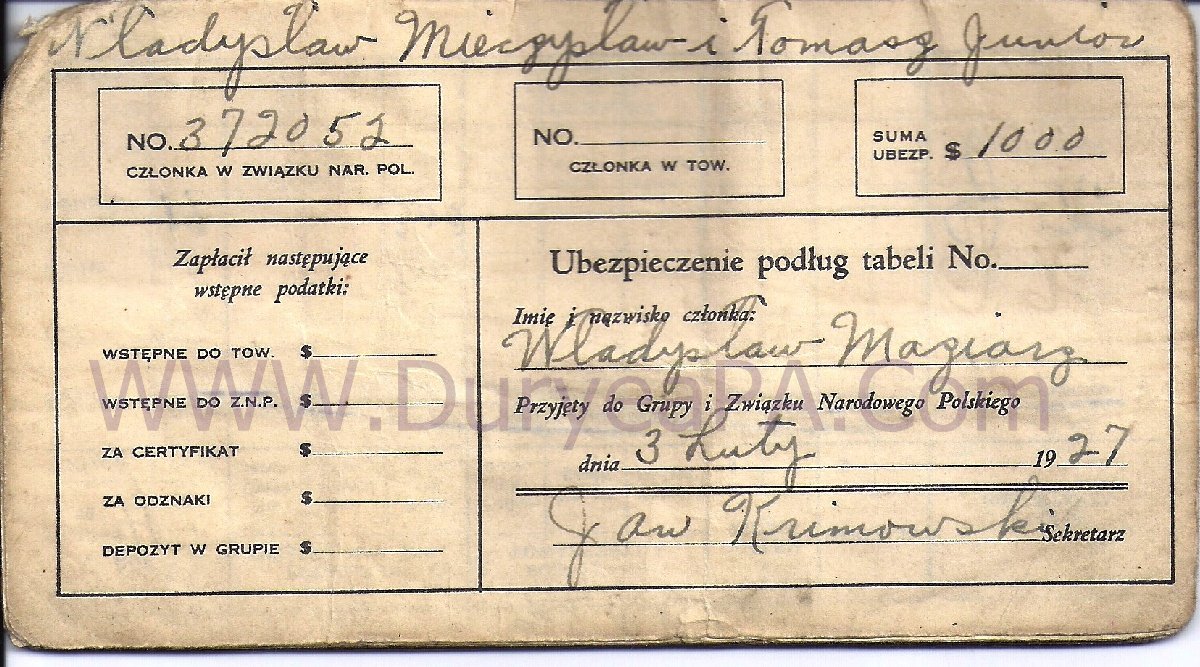 Władysław Mieczysław i Tomasz Junior
NO. 372052
CZŁONKA W ZWIĄZKU NAR. POL.
NO.
CZŁONKA W TOW.
SUMA
UBEZP. $ 1000
Zapłacił następujące
wstępne podatki:
WSTĘPNE DO TOW. $
WSTĘPNE DO Z.N.P. $
ZA CERTYFIKAT $
ZA ODZNAKI $
DEPOZYT W GRUPIE $
Ubezpieczenie podług tabeli No.
Imię i nazwisko członka:
Władysław Magiarz
Przyjęty do Grupy i Związku Narodowego Polskiego
dnia 3 Luty 1927
Jan Krimowski Sekretarz
WWW.DuryeaPA.Com